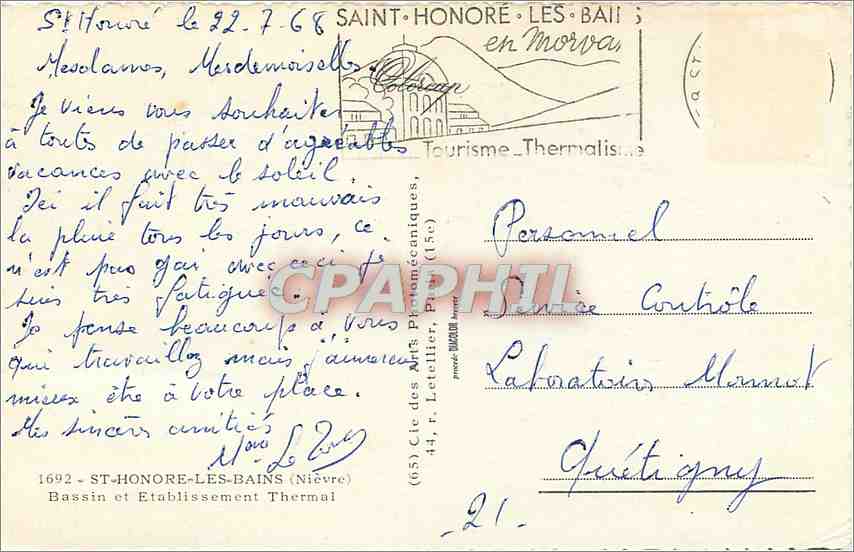 St Honoré le 22.7.68
Mesdames, Mesdemoiselles
Je viens vous souhaiter
à toutes de passer d'agréables
vacances avec le soleil.
Ici il fait très mauvais
la pluie tous les jours, ce
n'est pas gai avec ceci je
suis très fatiguée.
Je pense beaucoup à vous
qui travaillez mais j'aimerais
mieux être à votre place.
Mes sincères amitiés
Mme Le
1692 - ST-HONORE-LES-BAINS (Nièvre)
Bassin et Etablissement Thermal
SAINT·HONORÉ·LES·BAINS
en Morvan
Tourisme_Thermalisme
(65) Cie des Arts Photomécaniques,
44, r. Letellier, Paris (15e)
procédé DIAGOLOR
Personnel
Service Contrôle
Laboratoire
Quétigny
-21-
CPAPHIL